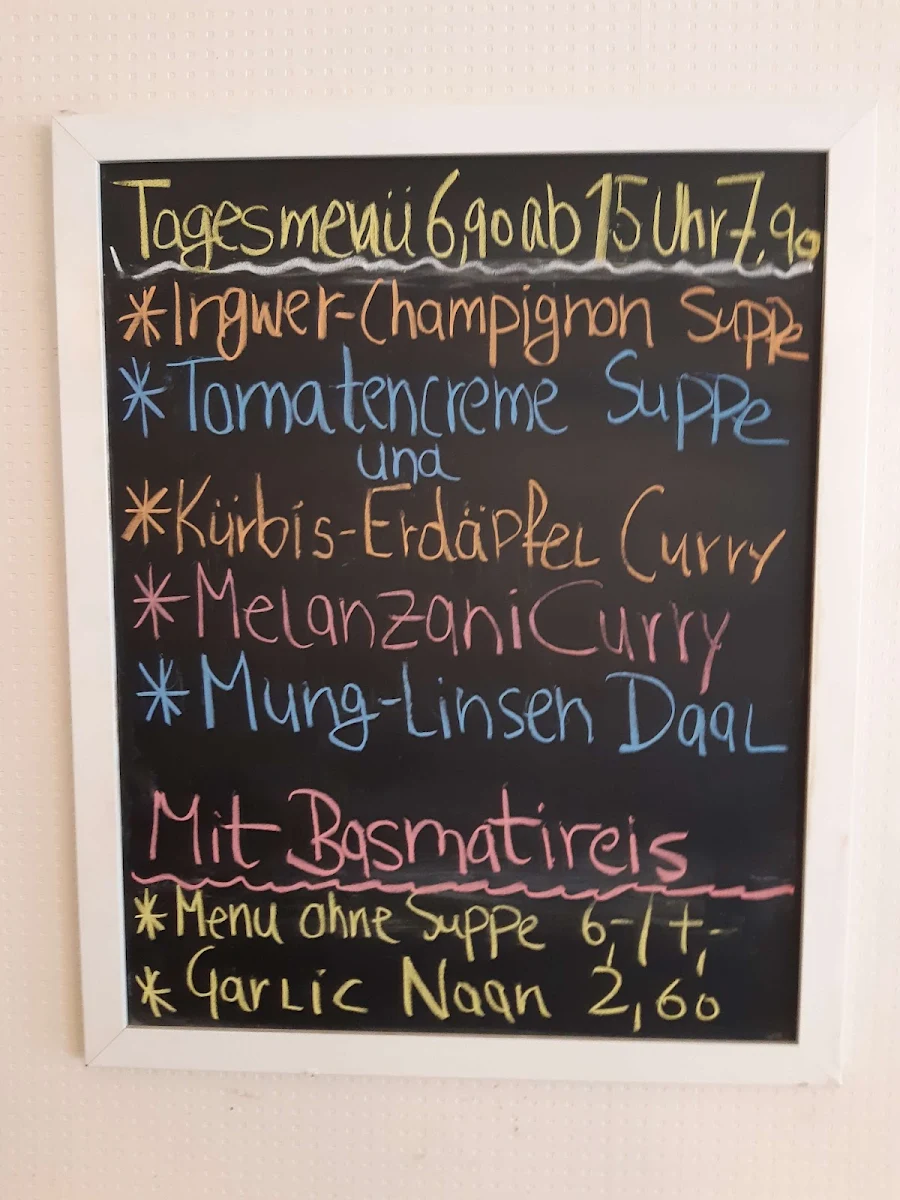 Tagesmenü 6,90 ab 15 Uhr 7,90
*Ingwer-Champignon Suppe
*Tomatencreme Suppe
und
*Kürbis-Erdäpfel Curry
*Melanzani Curry
*Mung-Linsen Daal
Mit Basmatireis
*Menu ohne Suppe 6,-/7,-
*Garlic Naan 2,60